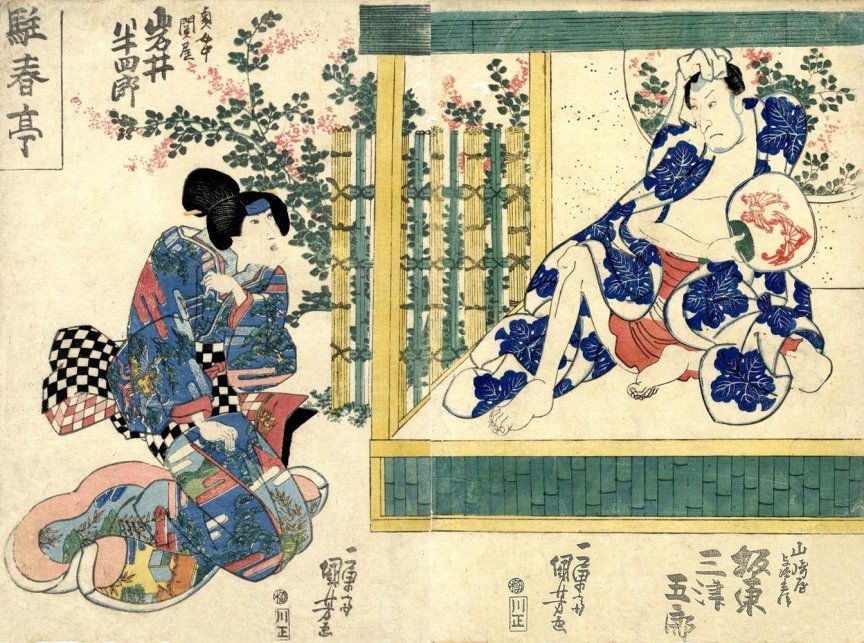 山崎屋
与次兵衛
坂東
三津
五郎
一勇斎
國芳画
川正
貞女
関屋
岩井
半四郎
駐春亭
一勇斎
國芳画
川正